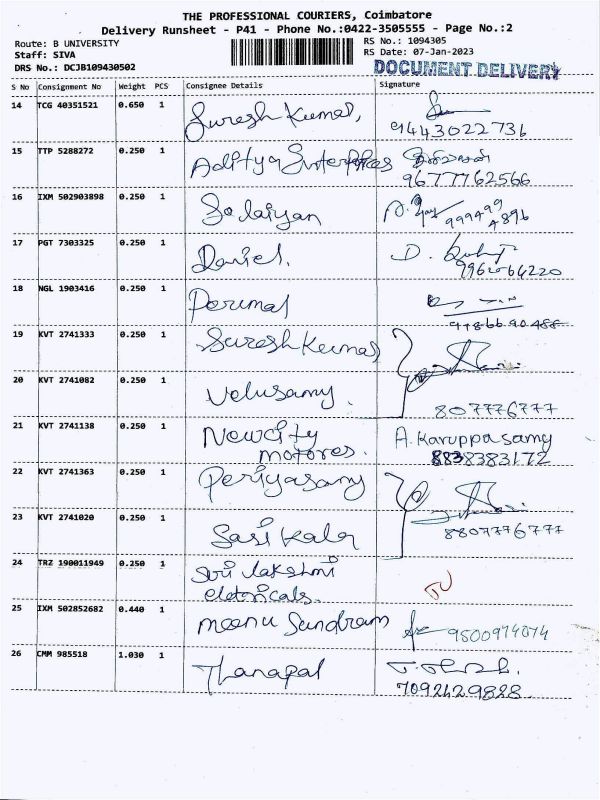 THE PROFESSIONAL COURIERS, Coimbatore
Delivery Runsheet - P41 - Phone No.:0422-3505555 - Page No.:2
Route: B UNIVERSITY
RS No.: 1094305
Staff: SIVA
RS Date: 07-Jan-2023
DRS No.: DCJB109430502
DOCUMENT DELIVERY
S No Consignment No Weight PCS Consignee Details Signature
14 TCG 40351521 0.650 1 Suresh Kumar,
9443022736
15 TTP 5288272 0.250 1 Aditya Enterprises
9677762566
16 IXM 502903898 0.250 1 Solaiyan
999499 4896
17 PGT 7303325 0.250 1 Daniel. D.
18 NGL 1903416 0.250 1 Perumal
19 KVT 2741333 0.250 1 Suresh Kumar
20 KVT 2741082 0.250 1 Velusamy.
807776777
21 KVT 2741138 0.250 1 Newcity A. Karuppasamy
motores. 8838383172
22 KVT 2741363 0.250 1 Periyasamy
23 KVT 2741020 0.250 1 Sasi Kala
8807776777
24 TRZ 190011949 0.250 1 Sri lakshmi
eletricals.
25 IXM 502852682 0.440 1 Meenu Sundram
26 CMM 985518 1.030 1 Thanapal
7092429828